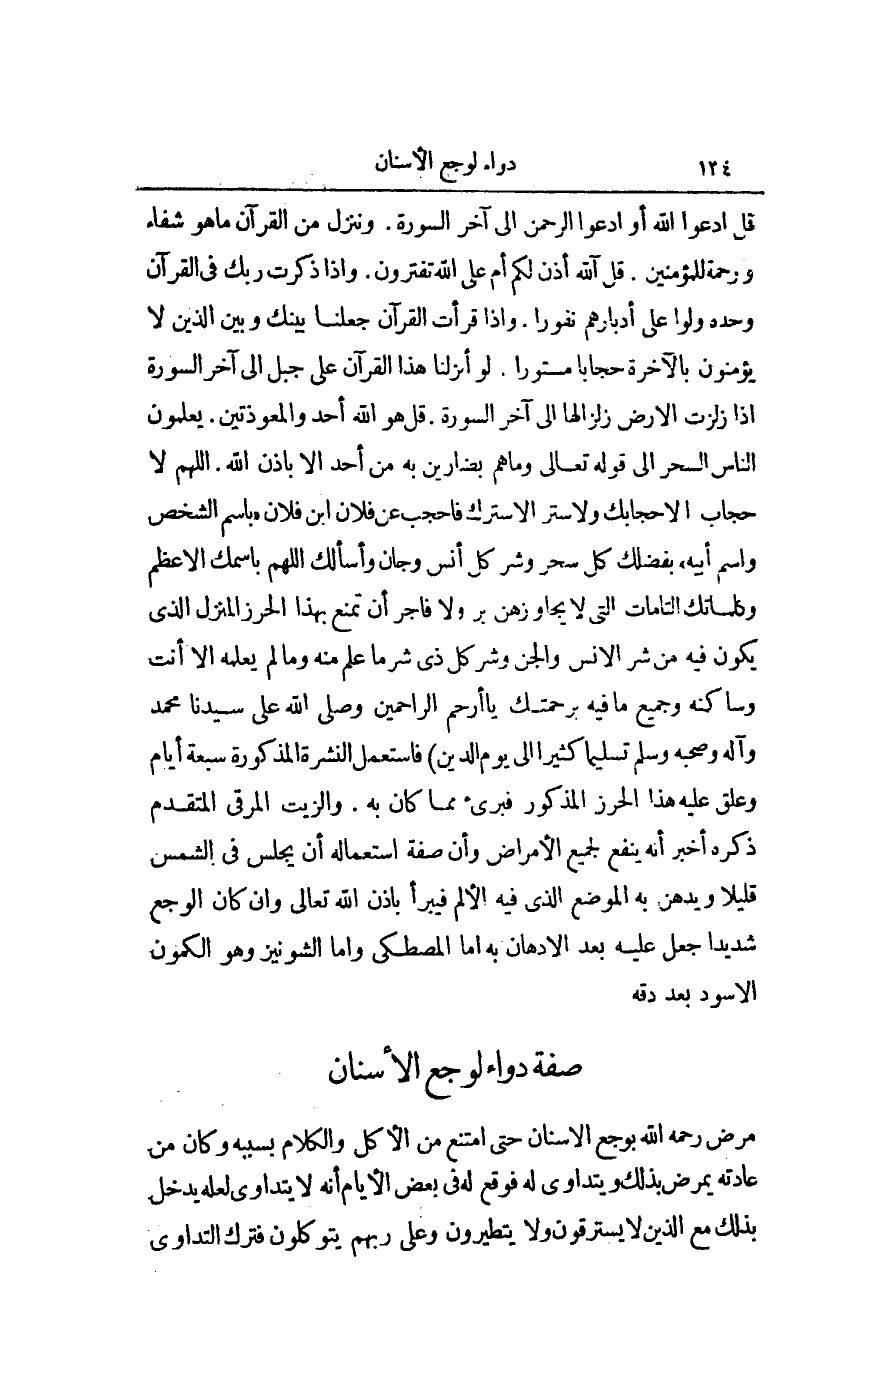 ١٢٤ دواء لوجع الأسنان
قل ادعوا الله أو ادعوا الرحمن الى آخر السورة . وننزل من القرآن ماهو شفاء
ورحمة للمؤمنين . قل آلله أذن لكم أم على الله تفترون . واذا ذكرت ربك فى القرآن
وحده ولوا على أدبارهم نفورا . واذا قرأت القرآن جعلنا بينك وبين الذين لا
يؤمنون بالآخرة حجابا مستورا . لو أنزلنا هذا القرآن على جبل الى آخر السورة
اذا زلزت الارض زلزالها الى آخر السورة . قل هو الله أحد والمعوذتين . يعلمون
الناس السحر الى قوله تعالى وماهم بضارين به من أحد الا باذن الله . اللهم لا
حجاب الا حجابك ولا ستر الا سترك فاحجب عن فلان ابن فلان «باسم الشخص
واسم أبيه» بفضلك كل سحر وشر كل أنس وجان وأسألك اللهم باسمك الاعظم
وكلماتك التامات التى لا يجاوزهن بر ولا فاجر أن تمنع بهذا الحرز المنزل الذى
يكون فيه من شر الانس والجن وشر كل ذى شر ما علم منه وما لم يعلمه الا أنت
وساكنه وجميع مافيه برحمتك ياأرحم الراحمين وصلى الله على سيدنا محمد
وآله وصحبه وسلم تسليما كثيرا الى يوم الدين) فاستعمل النشرة المذكورة سبعة أيام
وعلق عليه هذا الحرز المذكور فبرىء مما كان به . والزيت المرقى المتقدم
ذكره أخبر أنه ينفع لجميع الأمراض وأن صفة استعماله أن يجلس فى الشمس
قليلا ويدهن به الموضع الذى فيه الألم فيبرأ باذن الله تعالى وان كان الوجع
شديدا جعل عليه بعد الادهان به اما المصطكى واما الشونيز وهو الكمون
الاسود بعد دقه
صفة دواء لوجع الأسنان
مرض رحمه الله بوجع الاسنان حتى امتنع من الأكل والكلام بسببه وكان من
عادته يمرض بذلك ويتداوى له فوقع له فى بعض الأيام أنه لا يتداوى لعله يدخل
بذلك مع الذين لا يسترقون ولا يتطيرون وعلى ربهم يتوكلون فترك التداوى